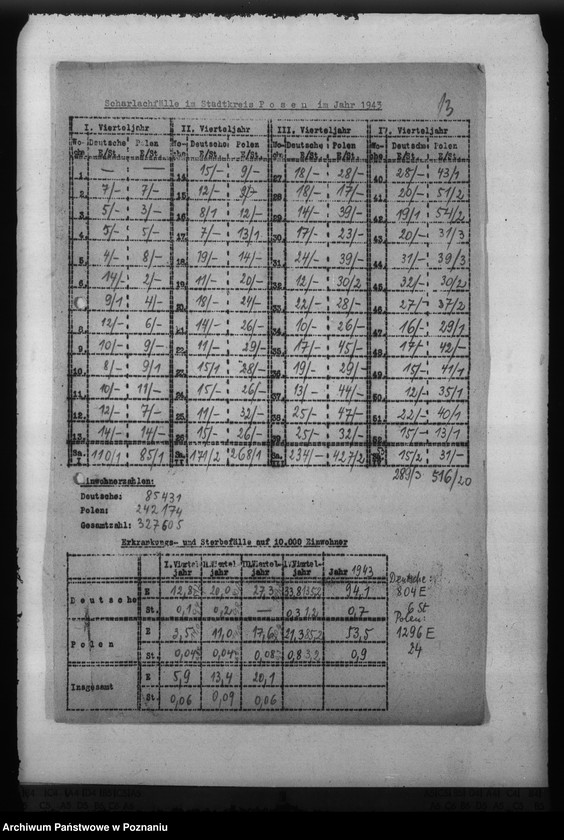 13
Scharlachfälle im Stadtkreis Posen im Jahr 1943
I. Vierteljahr II. Vierteljahr III. Vierteljahr IV. Vierteljahr
Wo-che Deutsche E/St. Polen E/St. Wo-che Deutsche E/St. Polen E/St. Wo-che Deutsche E/St. Polen E/St. Wo-che Deutsche E/St. Polen E/St.
1. — — 14. 15/- 9/- 27. 18/- 28/- 40. 28/- 43/1
2. 7/- 7/- 15. 12/- 9/- 28. 18/- 17/- 41. 20/- 51/2
3. 5/- 3/- 16. 8/1 12/- 29. 14/- 39/- 42. 19/1 54/2
4. 5/- 5/- 17. 7/- 13/1 30. 17/- 23/- 43. 20/- 31/3
5. 4/- 8/- 18. 19/- 14/- 31. 24/- 39/- 44. 31/- 39/3
6. 14/- 2/- 19. 11/- 20/- 32. 12/- 30/2 45. 32/- 30/2
9/1 4/- 20. 18/- 24/- 33. 22/- 28/- 46. 27/- 37/2
8. 12/- 6/- 21. 14/- 26/- 34. 10/- 26/- 47. 16/- 29/1
9. 10/- 9/- 22. 11/- 29/- 35. 17/- 45/- 48. 17/- 42/-
10. 8/- 9/1 23. 15/1 28/- 36. 19/- 29/- 49. 15/- 41/1
11. 10/- 11/- 24. 15/- 26/- 37. 13/- 44/- 50. 12/- 35/1
12. 12/- 7/- 25. 11/- 32/- 38. 25/- 47/- 51. 22/- 40/1
13. 14/- 14/- 26. 15/- 26/- 39. 25/- 32/- 52. 15/- 13/1
Sa. I 110/1 85/1 Sa. II 171/2 268/1 Sa. III 234/- 427/2 15/2 31/-
289/3 516/20
Einwohnerzahlen:
Deutsche: 85431
Polen: 242174
Gesamtzahl: 327605
Erkrankungs- und Sterbefälle auf 10.000 Einwohner
I.Viertel-jahr II.Viertel-jahr III.Viertel-jahr IV.Viertel-jahr Jahr 1943
Deutsche E 12,8 20,0 27,3 33,8 94,1
St. 0,1 0,2 — 0,3 0,7
Polen E 3,5 11,0 17,6 21,3 53,5
St. 0,04 0,04 0,08 0,8 0,9
Insgesamt E 5,9 13,4 20,1
St. 0,06 0,09 0,06
Deutsche:
804 E
6 St
Polen:
1296 E
24
Archiwum Państwowe w Poznaniu